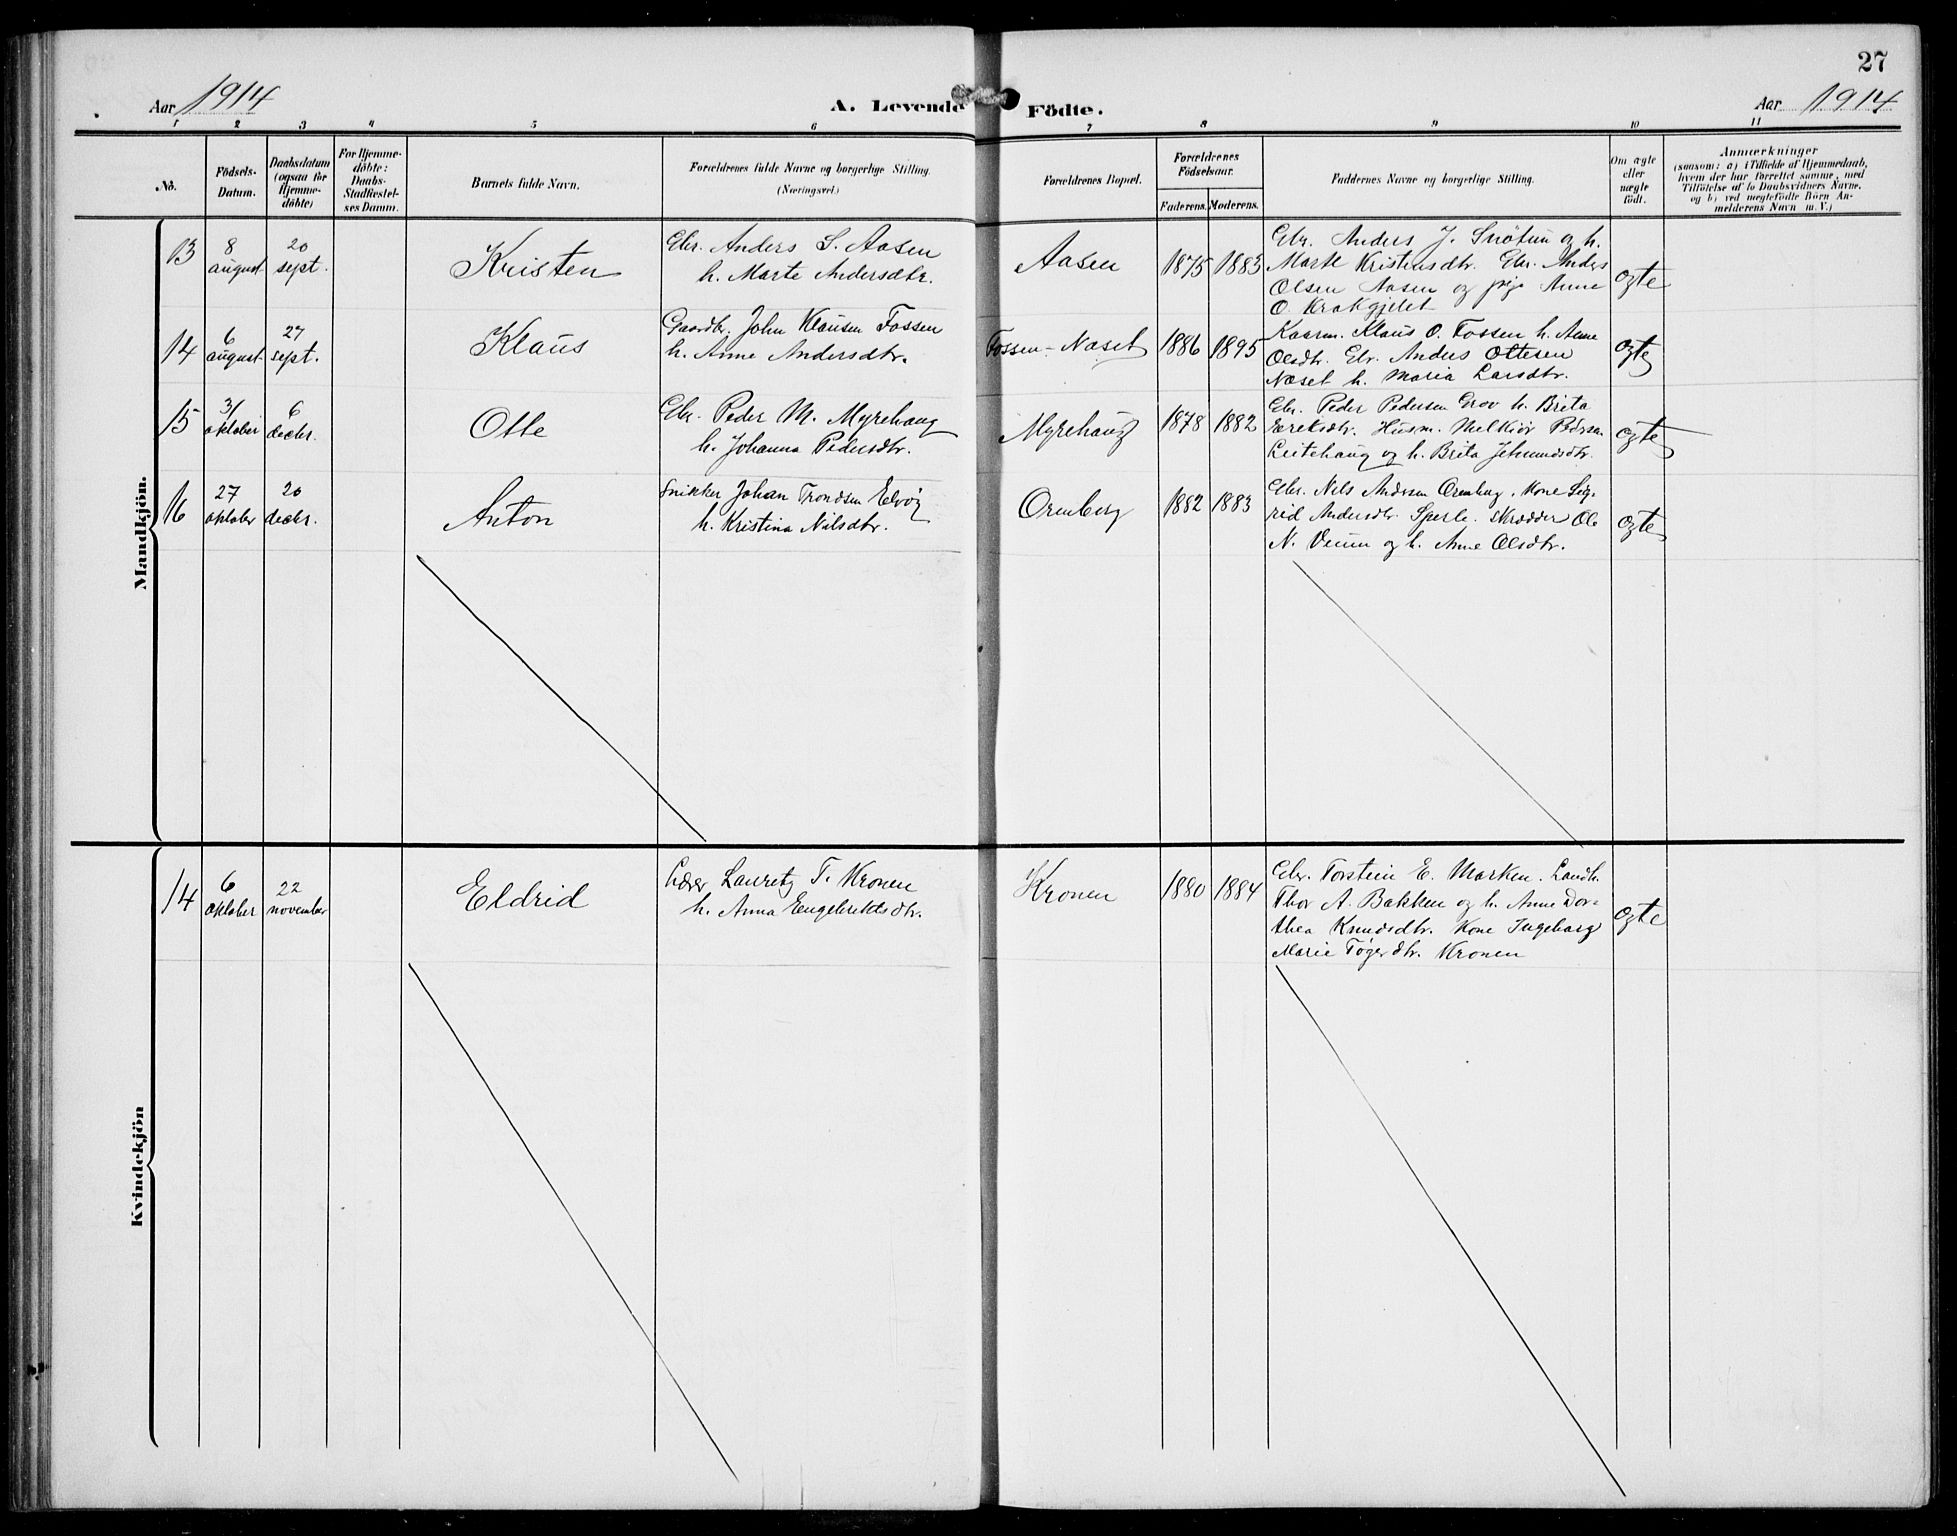 27
Aar 1914
A. Levende Födte.
Aar 1914
1 2 3 4 5 6 7 8 9 10 11
No.
Födsels-
Datum.
Daabsdatum
(ogsaa for
Hjemme-
döbte)
For Hjemme-
döbte:
Daabs-
Stadfæstel-
ses Datum.
Barnets fulde Navn.
Forældrenes fulde Navne og borgerlige Stilling.
(Næringsvei.)
Forældrenes Bopæl.
Forældrenes
Födselsaar.
Faderens. Moderens.
Faddernes Navne og borgerlige Stilling.
Om ægte
eller
uægte
födt.
Anmærkninger
(saasom: a) i Tilfælde af Hjemmedaab,
hvem der har forrettet samme, med
Tilföielse af to Daabsvidners Navne,
og b) ved uegtefödte Börn An-
melderens Navn m. V.)
Mandkjön.
13
8
august
20
sept.
Kristen
Gbr. Anders S. Aasen
h. Marte Andersdtr.
Aasen
1875 1883
Gbr. Anders J. Snötun og h.
Marte Kristensdtr. Gbr. Anders
Olsen Aasen og pige Anne
O. Krakgjelet
ægte
14
6
august
27
sept.
Klaus
Gaardbr. John Klausen Fossen
h. Anne Andersdtr.
Fossen-Naset
1886 1895
Kaarm. Klaus O. Fossen h. Anne
Olsdtr. Gbr. Anders Ottesen
Næset h. Maria Larsdtr.
ægte
15
31
oktober
6
decbr.
Otte
Gbr. Peder M. Myrehaug
h. Johanna Pedersdtr.
Myrehaug
1878 1882
Gbr. Peder Pedersen Grov h. Brita
Eriksdtr. Husm. Melkior
Leitehaug og h. Brita Jetmundsdtr.
ægte
16
27
oktober
20
decbr.
Anton
Snikker Johan Trondsen Elvög
h. Kristina Nilsdtr.
Orenberg
1882 1883
Gbr. Nils Andersen Orenberg. Kone Sig-
rid Andersdtr. Sperle. Skrædder Ole
N. Veum og h. Anne Olsdtr.
ægte
Kvindekjön
14
6
oktober
22
november
Eldrid
Lærer Lauretz T. Kronen
h. Anna Engebretsdtr.
Kronen
1880 1884
Gbr. Torstein E. Marken. Landh.
Thor A. Bakken og h. Anne Dor-
thea Knudsdtr. Kone Ingeborg
Marie Tögersdtr. Kronen
ægte